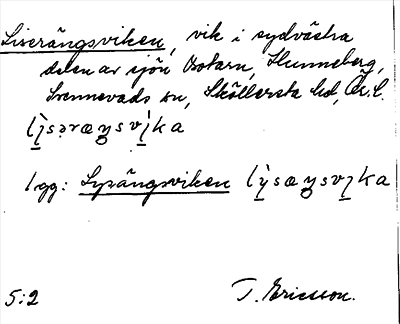 Liserängsviken, vik i sydvästra
delen av sjön Botarn, Hunneberg,
Svennevads sn, Sköllersta hd, Ör. l.
lı̀səræŋsvı̀ka
lgg: Lysängsviken lỳsæŋsvıka
5:2 T. Ericsson.